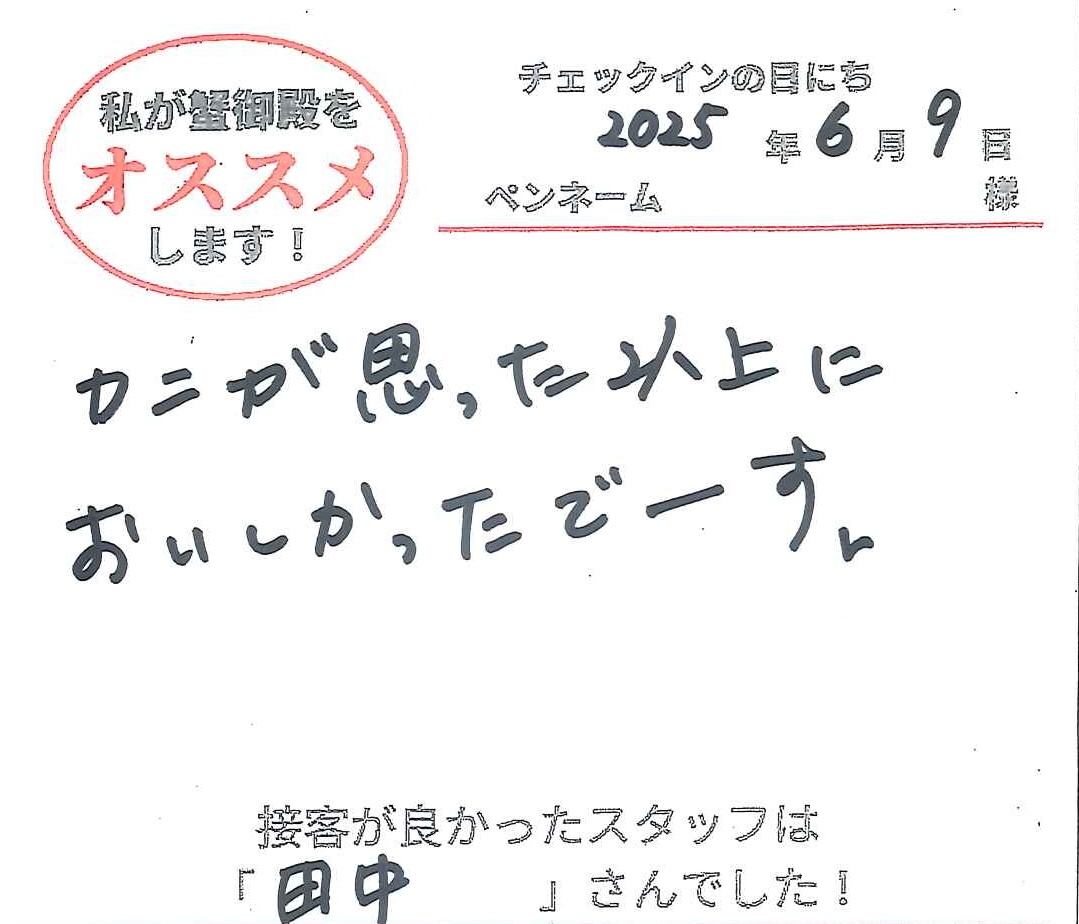 私が蟹御殿を
オススメ
します！
チェックインの日にち
2025 年 6 月 9 日
ペンネーム 様
カニが思った以上に
おいしかったでーす。
接客が良かったスタッフは
「田中 」さんでした！